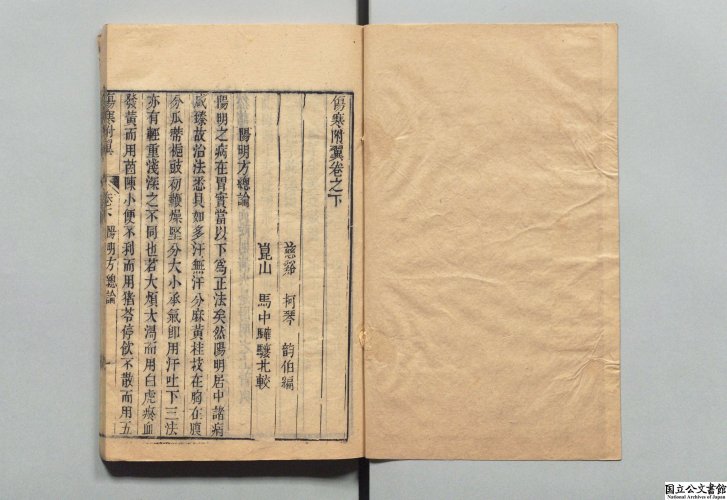 傷寒附翼卷之下
慈谿 柯琴 韵伯編
崑山 馬中驊驤北較
陽明方總論
陽明之病在胃實當以下為正法矣然陽明居中諸病
咸臻故治法悉具如多汗無汗分麻黃桂枝在胸在腹
分瓜蒂梔豉初鞕燥堅分大小承氣即用汗吐下三法
亦有輕重淺深之不同也若大煩大渴而用白虎瘀血
發黃而用茵陳小便不利而用猪苓停飲不散而用五
傷寒附翼 卷下 陽明方總論 一
国立公文書館
National Archives of Japan